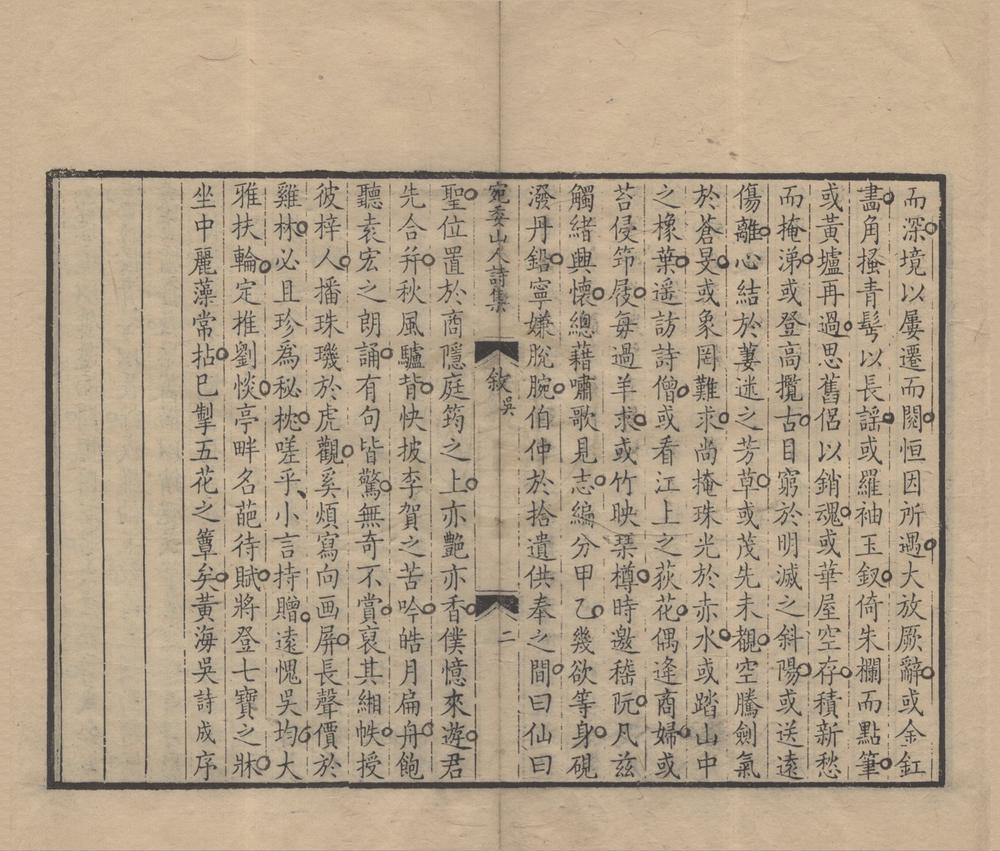 而深境以屢遷而閱恒因所遇大放厥辭或金釭
畵角搔青髩以長謡或羅袖玉釵倚朱欄而點筆
或黃壚再過思舊侶以銷魂或華屋空存積新愁
而掩涕或登高攬古目窮於明滅之斜陽或送遠
傷離心結於萋迷之芳草或茂先未覯空騰劍氣
於蒼旻或象罔難求尚掩珠光於赤水或踏山中
之橡葉遥訪詩僧或看江上之荻花偶逢商婦或
苔侵笻屐毎過羊求或竹映琹樽時邀嵇阮凡兹
觸緒興懷總藉嘯歌見志編分甲乙幾欲等身硯
潑丹鉛寧嫌脫腕伯仲於拾遺供奉之間曰仙曰
宛委山人詩集 敘吳 二
聖位置於商隱庭筠之上亦艷亦香僕憶來遊君
先合幷秋風驢背快披李賀之苦吟皓月扁舟飽
聽袁宏之朗誦有句皆驚無奇不賞裒其緗帙授
彼梓人播珠璣於虎觀奚煩寫向画屏長聲價於
雞林必且珍爲秘枕嗟乎小言持贈遠愧吳均大
雅扶輪定推劉惔亭畔名葩待賦將登七寶之牀
坐中麗藻常拈已掣五花之簟矣黃海吳詩成序